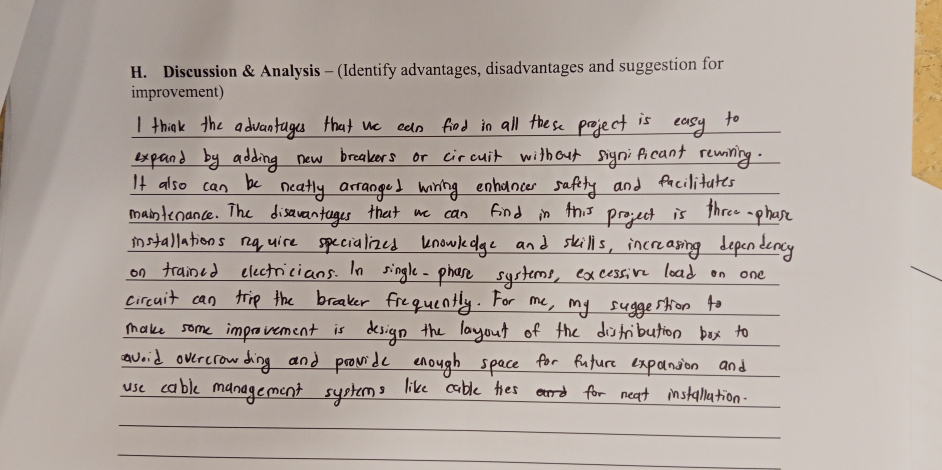 H. Discussion & Analysis – (Identify advantages, disadvantages and suggestion for
improvement)
I think the advantages that we can find in all these project is easy to
expand by adding new breakers or circuit without significant rewiring.
It also can be neatly arranged wiring enhances safety and facilitates
maintenance. The disavantages that we can find in this project is three-phase
installations require specialized knowledge and skills, increasing dependency
on trained electricians. In single-phase systems, excessive load on one
circuit can trip the breaker frequently. For me, my suggestion to
make some improvement is design the layout of the distribution box to
avoid overcrowding and provide enough space for future expansion and
use cable management systems like cable ties and for neat installation.